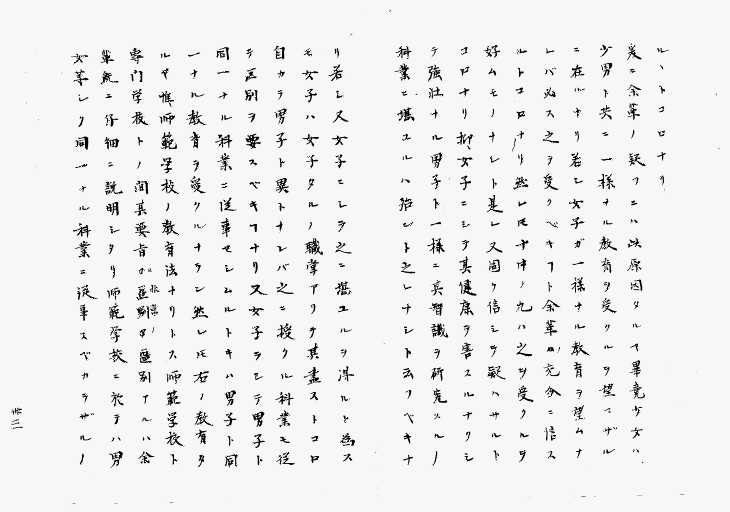 ル、トコロナリ
爰ニ余輩ノ疑フニハ此原因タルヤ畢竟少女ハ
少男ト共ニ一様ナル教育ヲ受クルヲ望ニザル
ニ在ルナリ若シ女子ガ一様ナル教育ヲ望ムナ
レバ必ス之ヲ受クベキフト余輩ノ充分ニ信ス
ルトコロナリ然レ𪜈女子中ノ九ハ之ヲ受クルヲ
好ムモノナシト是レ又固ク信シテ疑ハサルト
コロナリ抑女子ニシテ其健康ヲ害スルナクシ
テ強壮ナル男子ト一様ニ其智識ヲ研究スルノ
科業ニ堪ユルハ殆ント之レナシト云フベキナ
リ若シ又女子ニシテ之ニ堪ユルヲ得ルト為ス
モ女子ハ女子タルノ職掌アリテ其盡ストコロ
自カラ男子ト異トナレバ之ニ授クル科業モ従
テ区別ヲ要スベキフナリ又女子ヲシテ男子ト
同一ナル科業ニ従事セシムルトキハ男子ト同
一ナル教育ヲ受クルナラン然レ𪜈右ノ教育タ
ルヤ惟師範学校ノ教育法ナリトス師範学校ト
専門学校トノ間其要旨の区別アルハ余
輩既ニ仔細ニ説明シタリ師範学校ニ於テハ男
女等シク同一ナル科業ニ従事スベカラザルノ
卅二